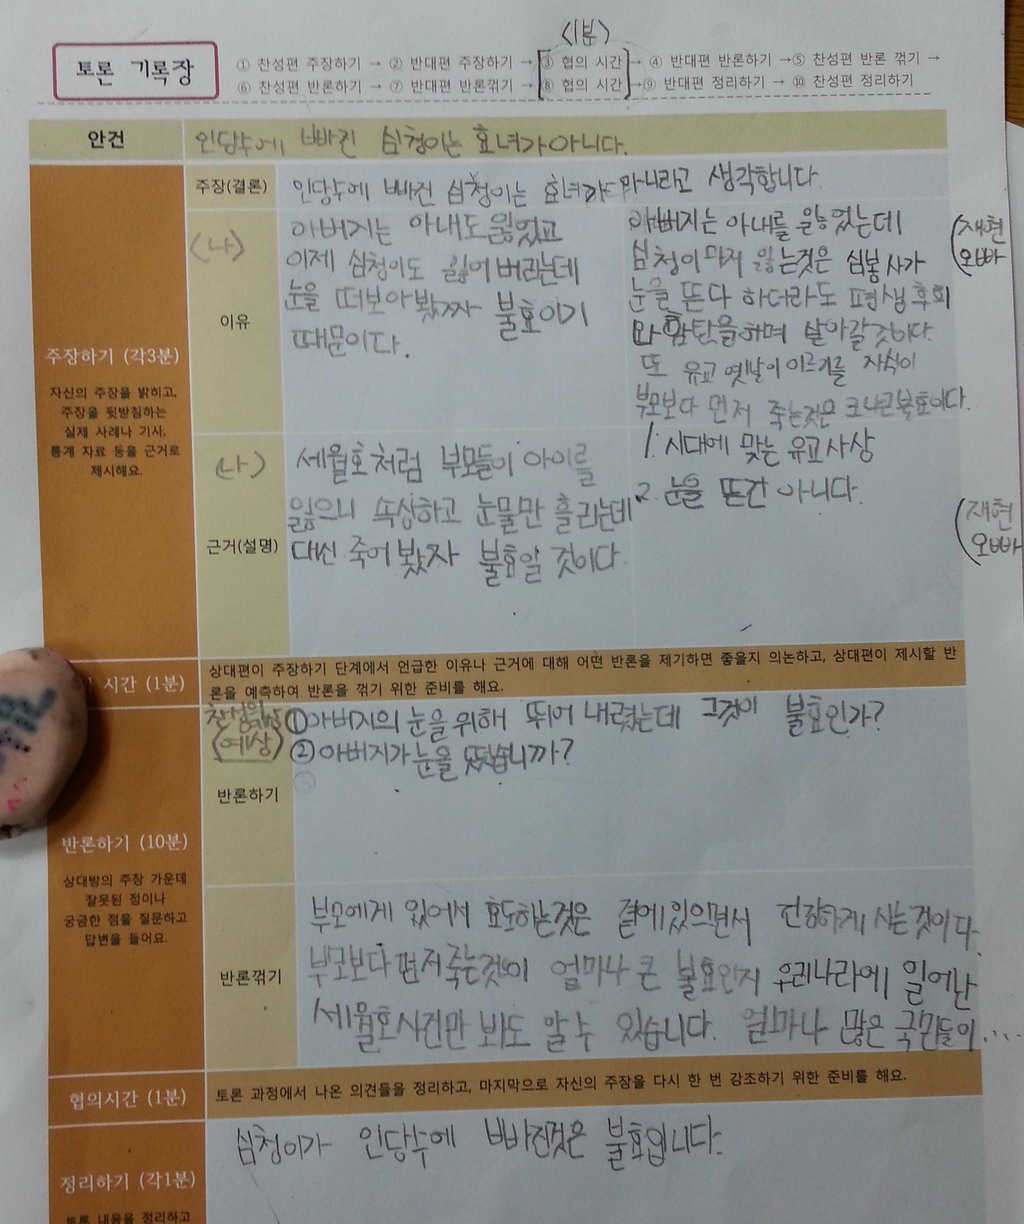 <1분>
토론 기록장
① 찬성편 주장하기 → ② 반대편 주장하기 → ③ 협의 시간 → ④ 반대편 반론하기 →⑤ 찬성편 반론 꺾기 →
⑥ 찬성편 반론하기 → ⑦ 반대편 반론꺾기 → ⑧ 협의 시간 →⑨ 반대편 정리하기 → ⑩ 찬성편 정리하기
안건
인당수에 빠진 심청이는 효녀가아니다.
주장하기 (각3분)
자신의 주장을 밝히고,
주장을 뒷받침하는
실제 사례나 기사,
통계 자료 등을 근거로
제시해요.
주장(결론)
인당수에 빠진 심청이는 효녀가 아니라고 생각합니다.
(나)
이유
아버지는 아내도 잃었고
이제 심청이도 잃어버리는데
눈을 떠보아 봤짜 불효이기
때문이다.
아버지는 아내를 잃었는데
심청이마저 잃는것은 심봉사가
눈을 뜬다 하더라도 평생 후회
와 한탄을하며 살아갈것이다.
또 유교 옛날이 이르기를 자식이
부모보다 먼저 죽는것은 크나큰불효이다.
(재현
오빠
(나)
근거(설명)
세월호처럼 부모들이 아이를
잃으니 속상하고 눈물만 흘리는데
대신 죽어 봤자 불효일 것이다.
1. 시대에 맞는 유교사상
2. 눈을 뜬건 아니다.
(재현
오빠
시간 (1분)
상대편이 주장하기 단계에서 언급한 이유나 근거에 대해 어떤 반론을 제기하면 좋을지 의논하고, 상대편이 제시할 반
론을 예측하여 반론을 꺾기 위한 준비를 해요.
반론하기 (10분)
상대방의 주장 가운데
잘못된 점이나
궁금한 점을 질문하고
답변을 들어요.
(예상)
반론하기
①아버지의 눈을위해 뛰어 내렸는데 그것이 불효인가?
②아버지가 눈을 떴습니까?
반론꺾기
부모에게 있어서 효도하는것은 곁에있으면서 건강하게 사는것이다.
부모보다먼저죽는것이 얼마나 큰 불효인지 우리나라에 일어난
세월호사건만 봐도 알수 있습니다. 얼마나 많은 국민들이...
협의시간 (1분)
토론 과정에서 나온 의견들을 정리하고, 마지막으로 자신의 주장을 다시 한 번 강조하기 위한 준비를 해요.
정리하기 (각1분)
토론 내용을 정리하고
심청이가 인당수에 빠진것은 불효입니다.